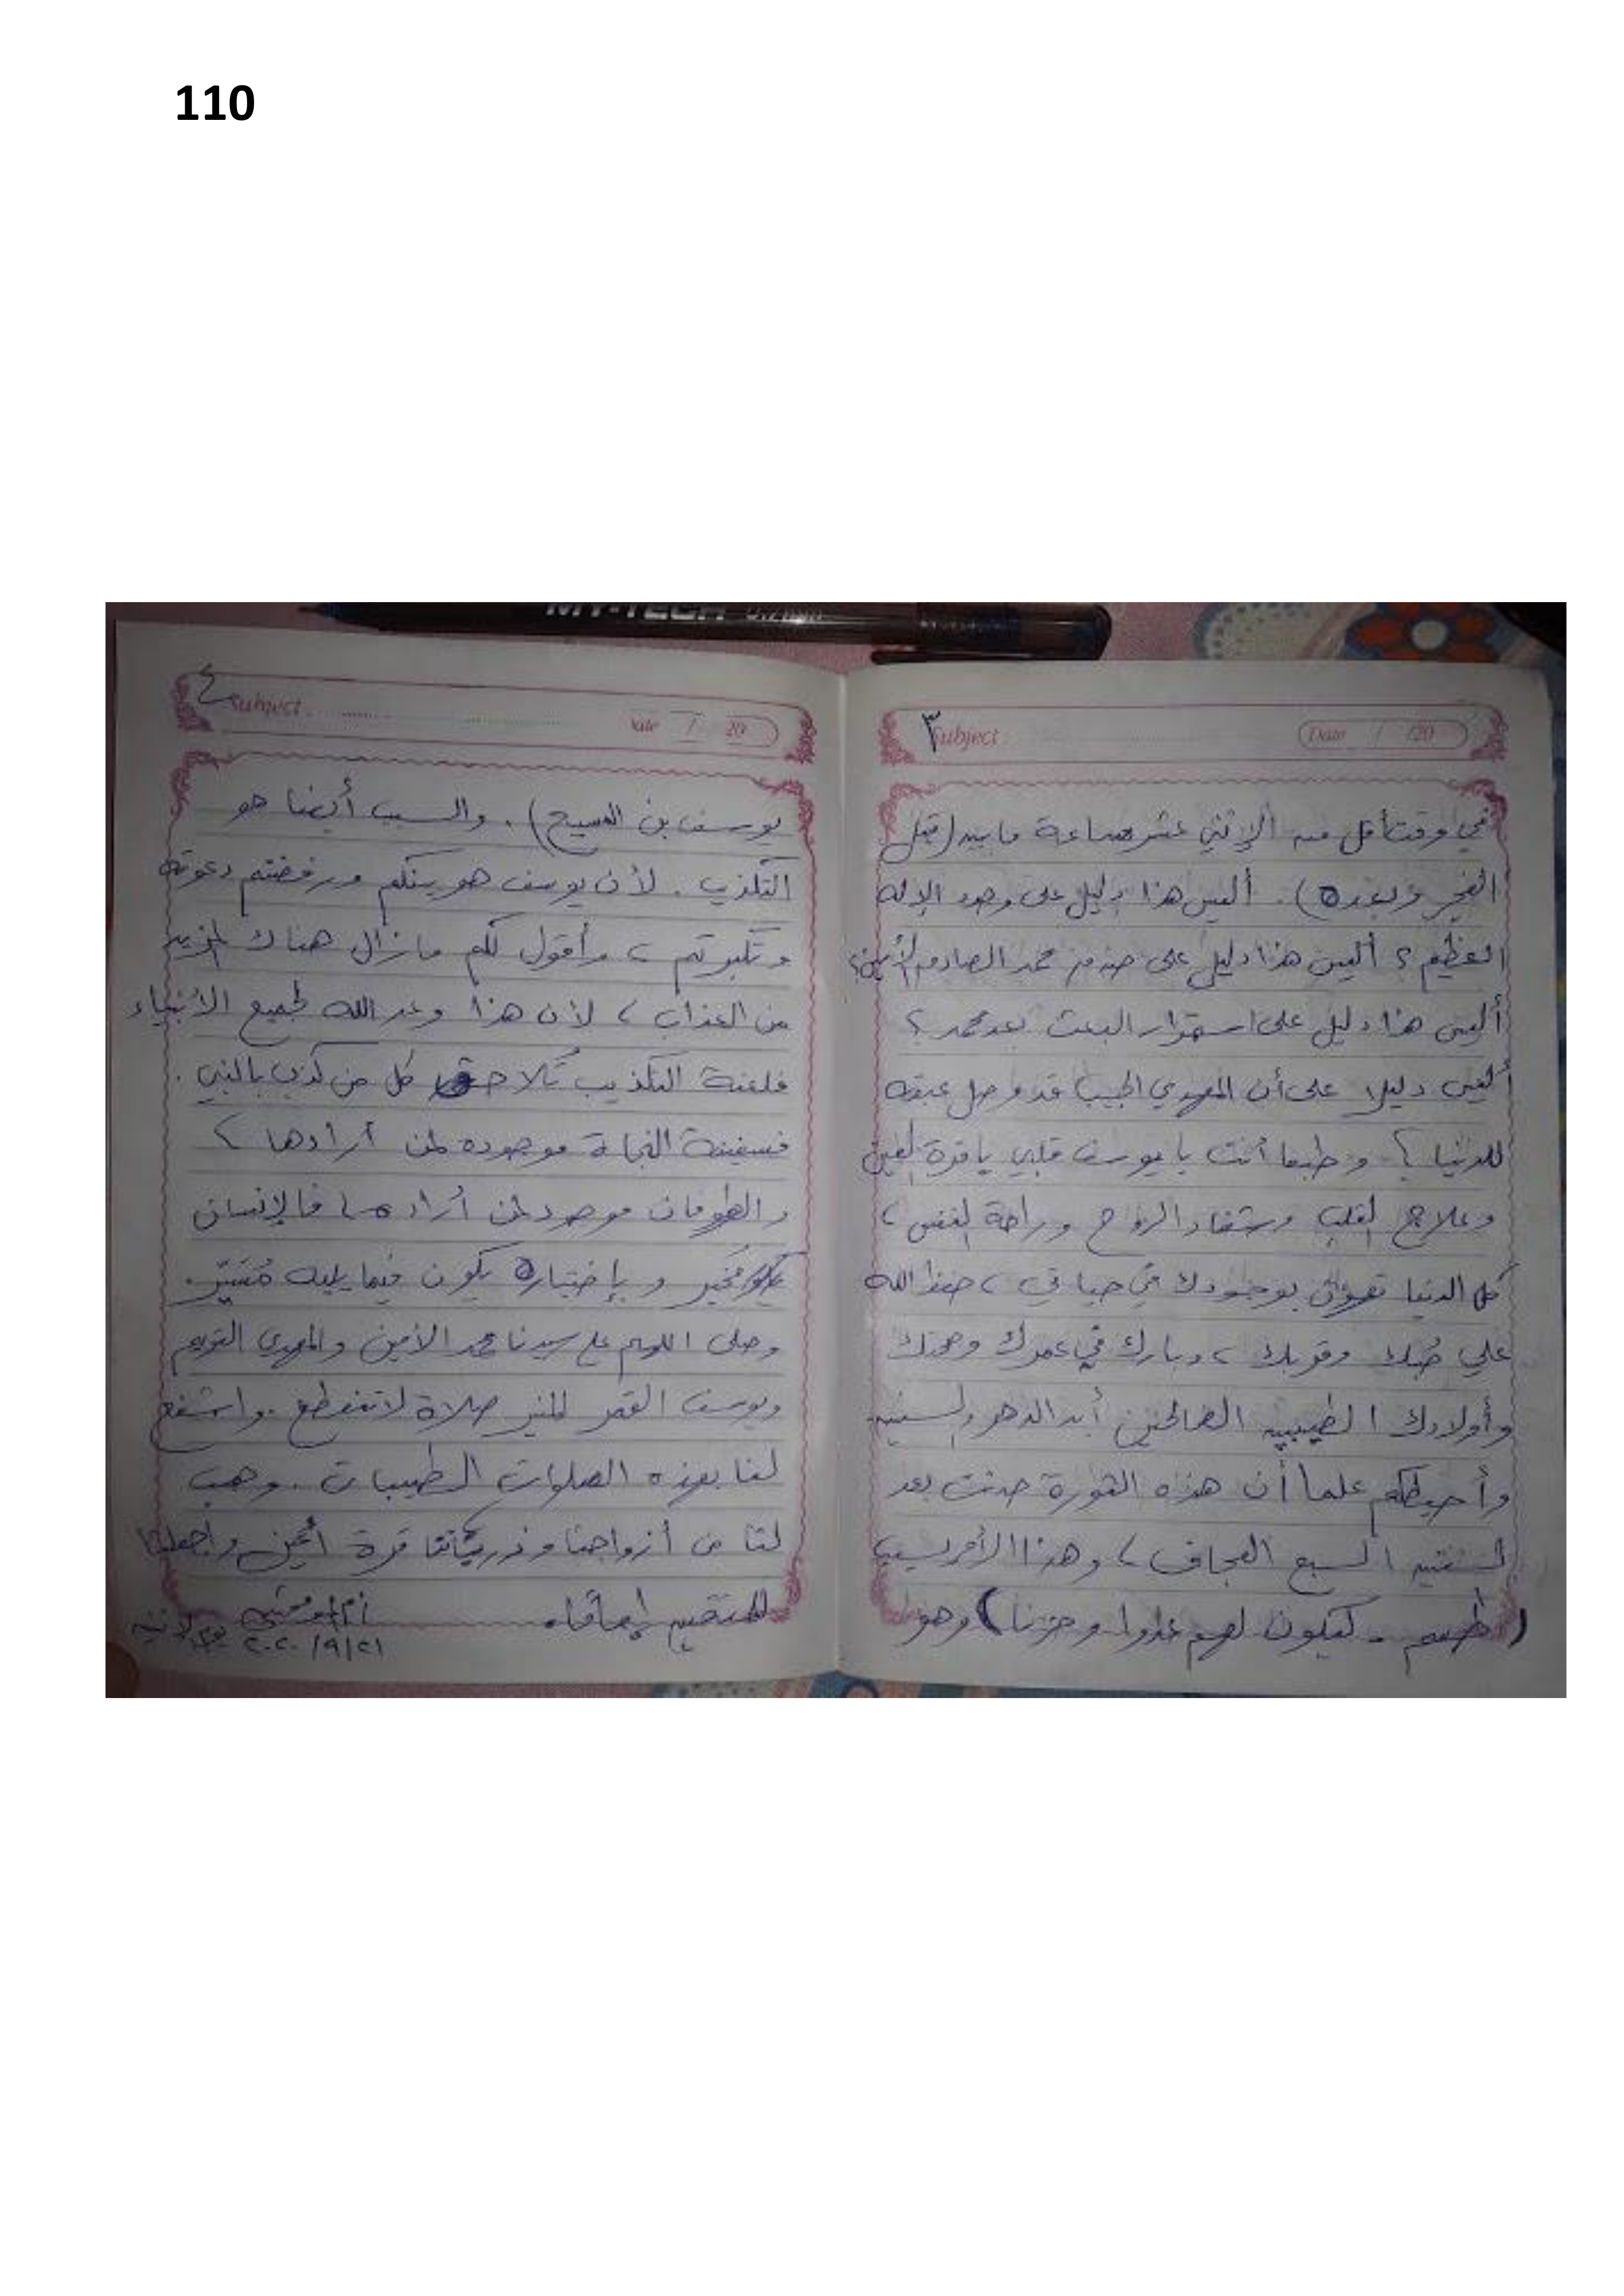 110
MY-TECH 0.7 mm
٣
Subject
Date / /20
في وقت أقل من الإثني عشر ساعة ما بين (قبل
الفجر وبعده). أليس هذا دليل على وجود الإله
العظيم ؟ أليس هذا دليل على صدق محمد الصادق الأمين؟
أليس هذا دليل على استمرار البعث بعد محمد ؟
أليس دليلا على أن المهدي الحبيب قد وصل عبقه
للدنيا ؟ وطبعا أنت يا يوسف قلبي يا قرة العين
وعلاج القلب وشفاء الروح وراحة النفس ،
كل الدنيا تهون بوجودك في حياتي ، حفظ الله
علي حُبك وقربك ، وبارك في عمرك وصحتك
وأولادك الطيبين الصالحين أبد الدهر والسنين
وأحيطكم علما أن هذه الثورة حدثت بعد
السنين السبع العجاف ، وهذا الأمر بسبب
( ظلمهم . ليكون لهم عدوا وحزنا ) وهو
٤
Subject
Date / 20
يوسف بن المسيح) . والسبب أيضا هو
التكذيب . لأن يوسف هو بينكم ورفضتم دعوته
وتكبرتم ، وأقول لكم مازال هناك المزيد
من العذاب ، لأن هذا وعد الله لجميع الأنبياء
فلعنة التكذيب تُلاحق كل من كذب بالنبي .
فسفينة النجاة موجوده لمن أرادها ،
والطوفان موجود لمن أراده ، فالإنسان
مُخَير وبإختياره يكون فيما يليه مُسَيَّر .
وصلى اللهم على سيدنا محمد الأمين والمهدي القويم
ويوسف القمر المنير صلاة لا تنقطع . واشفع
لنا بهذه الصلوات الطيبات . وهب
لنا من أزواجنا وذرياتنا قرة أعين واجعلنا
للمتقين إماما .
يوم الإثنين
٢٠٢٠/٩/٢١